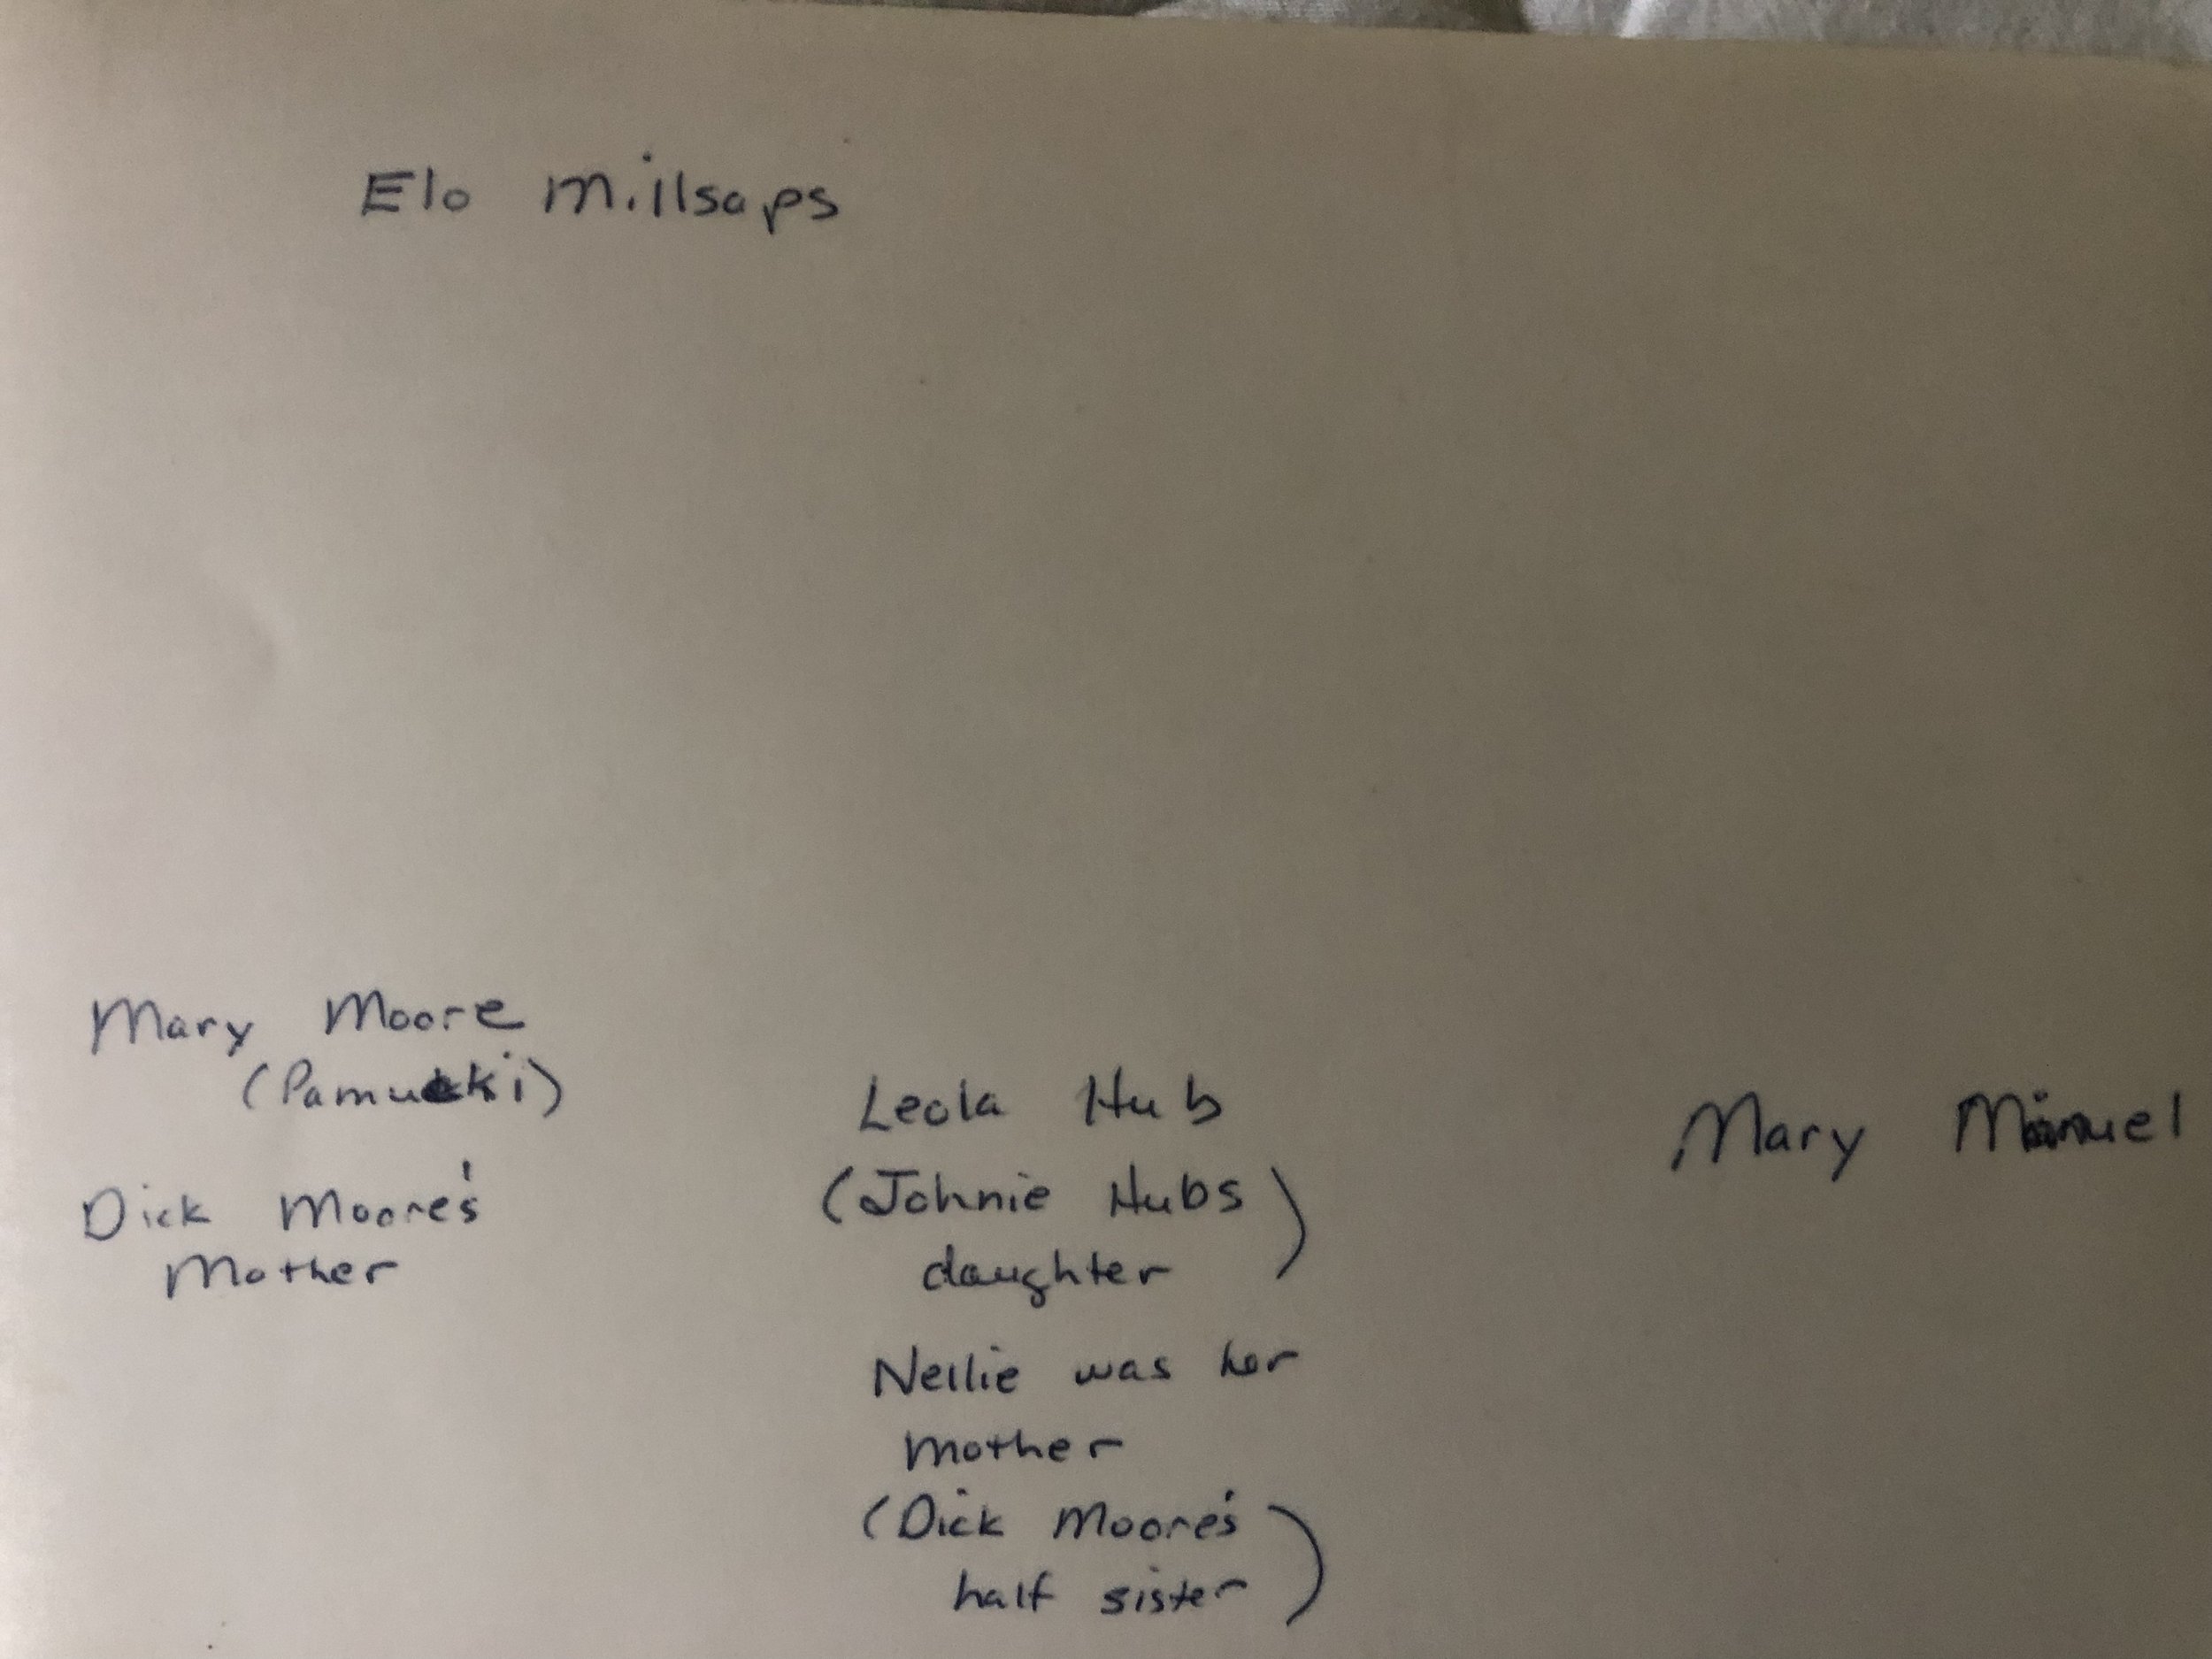 Elo Millsaps
Mary Moore
(Pamucki)
Dick Moore's
Mother
Leola Hub
(Johnie Hubs
daughter)
Nellie was her
mother
(Dick Moore's
half sister)
Mary